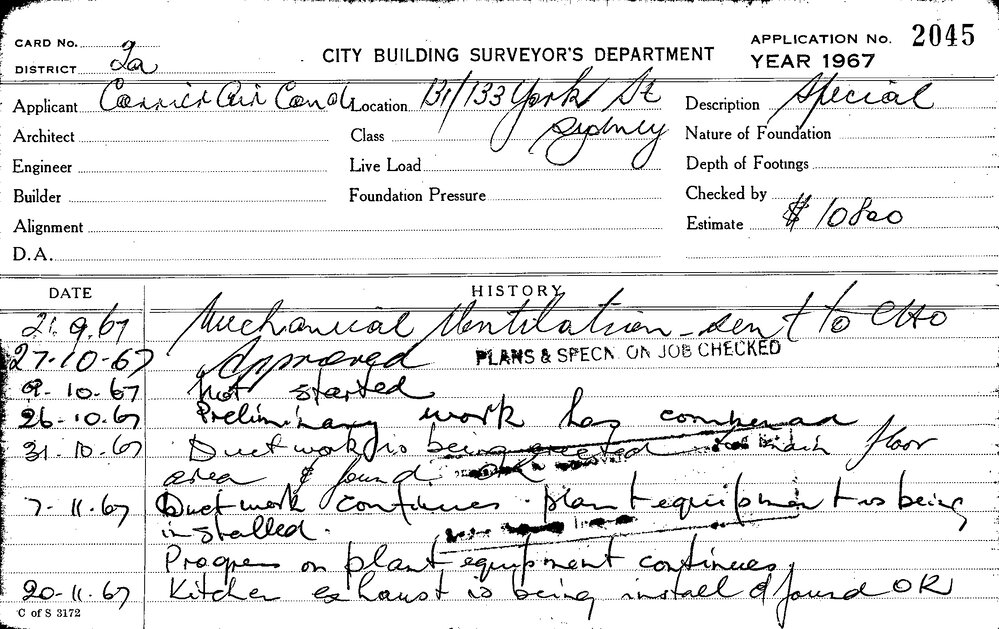 CARD No. 2
DISTRICT 2a
CITY BUILDING SURVEYOR'S DEPARTMENT
APPLICATION No. 2045
YEAR 1967
Applicant Carrier Air Cond
Location 131/133 York St
Sydney
Description Special
Architect
Class
Nature of Foundation
Engineer
Live Load
Depth of Footings
Builder
Foundation Pressure
Checked by
Alignment
Estimate $ 10800
D.A.
DATE
HISTORY
21.9.67 Mechanical Ventilation - sent to
27-10-67 Approved PLANS & SPECN. ON JOB CHECKED
9.10.67 Not started
26-10.67 Preliminary work has commenced
31.10.67 Ductwork is being erected main floor
area & found OK
7.11.67 Ductwork continues. plant equipment is being
installed.
Progress on plant equipment continues
20-11.67 Kitchen exhaust is being install & found OK
C of S 3172